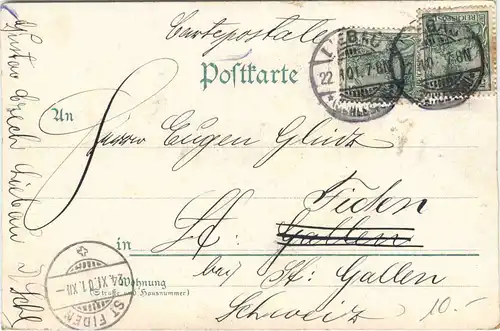 Carte postale
Postkarte
LIEBAU
22 . 01. 7-8N
REICHSPOST
An
Herrn Eugen
Fiden
St. Gallen
in
bei St. Gallen
Wohnung
(Straße und Hausnummer)
Schweiz
10.-
24. XI. 01. XII
ST FIDEN
Gustav Liebau